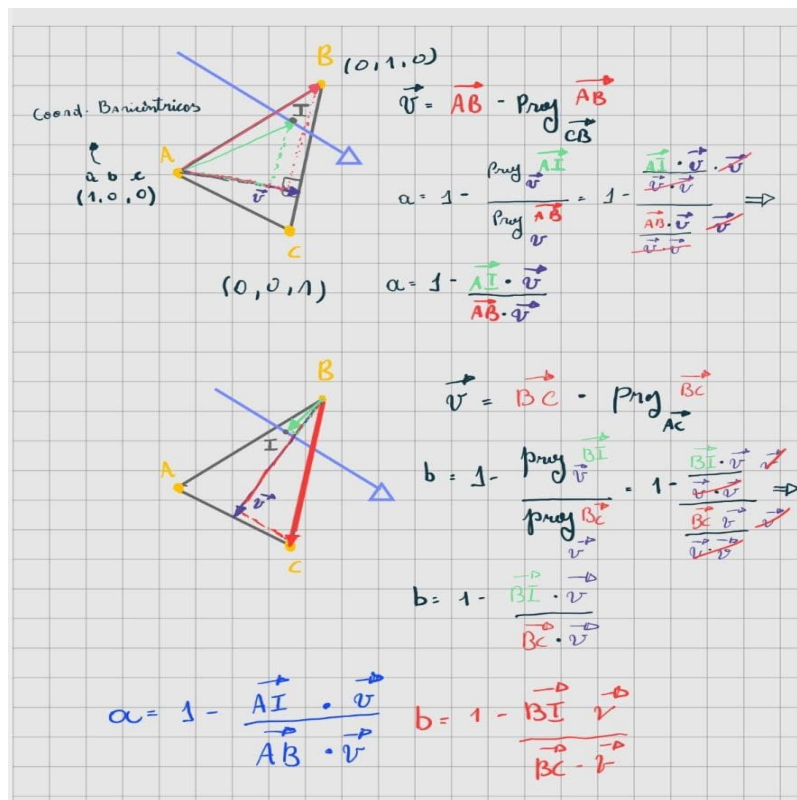 B (0,1,0)
Coord. Baricéntricos
I
A
a b c
(1,0,0)
v⃗
C
(0,0,1)
v⃗ = AB⃗ - Proy_CB⃗ AB⃗
a = 1 - Proy_v⃗ AI⃗ / Proy_v AB⃗ = 1 - (AI⃗ · v⃗ / v⃗ · v⃗ · v⃗) / (AB⃗ · v⃗ / v⃗ · v⃗ v⃗) ⇒
a = 1 - AI⃗ · v⃗ / AB⃗ · v⃗
B
I
A
v⃗
C
v⃗ = BC⃗ - proy_AC⃗ BC⃗
b = 1 - proy_v⃗ BI⃗ / proy_v⃗ BC⃗ = 1 - (BI⃗ · v⃗ / v⃗ · v⃗ v⃗) / (BC⃗ v⃗ / v⃗ · v⃗ v⃗) ⇒
b = 1 - BI⃗ · v⃗ / BC⃗ · v⃗
a = 1 - AI⃗ · v⃗ / AB⃗ · v⃗
b = 1 - BI⃗ v⃗ / BC⃗ - v⃗